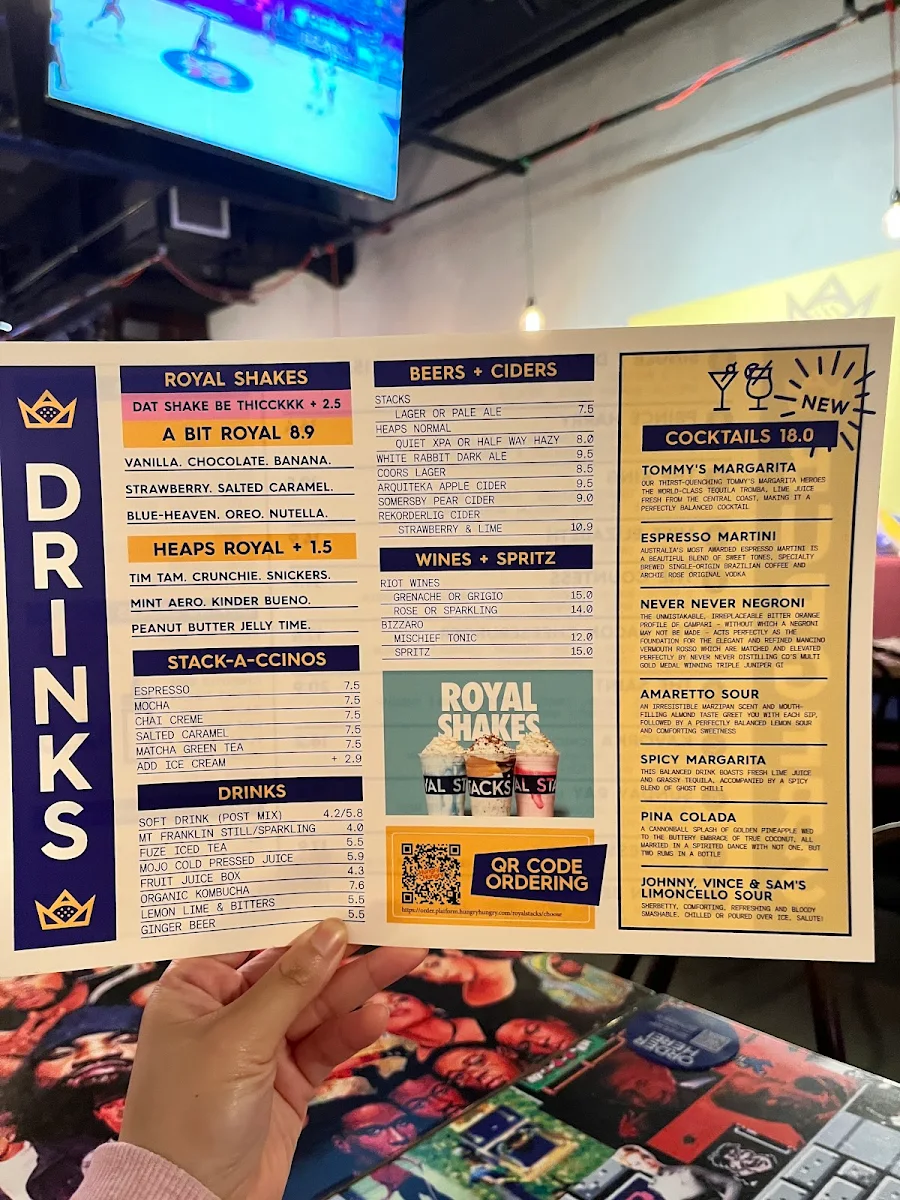 DRINKS
ROYAL SHAKES
DAT SHAKE BE THICCKKK + 2.5
A BIT ROYAL 8.9
VANILLA. CHOCOLATE. BANANA.
STRAWBERRY. SALTED CARAMEL.
BLUE-HEAVEN. OREO. NUTELLA.
HEAPS ROYAL + 1.5
TIM TAM. CRUNCHIE. SNICKERS.
MINT AERO. KINDER BUENO.
PEANUT BUTTER JELLY TIME.
STACK-A-CCINOS
ESPRESSO 7.5
MOCHA 7.5
CHAI CREME 7.5
SALTED CARAMEL 7.5
MATCHA GREEN TEA 7.5
ADD ICE CREAM + 2.9
DRINKS
SOFT DRINK (POST MIX) 4.2/5.8
MT FRANKLIN STILL/SPARKLING 4.0
FUZE ICED TEA 5.5
MOJO COLD PRESSED JUICE 5.9
FRUIT JUICE BOX 4.3
ORGANIC KOMBUCHA 7.6
LEMON LIME & BITTERS 5.5
GINGER BEER 5.5
BEERS + CIDERS
STACKS
LAGER OR PALE ALE 7.5
HEAPS NORMAL
QUIET XPA OR HALF WAY HAZY 8.0
WHITE RABBIT DARK ALE 9.5
COORS LAGER 8.5
ARQUITEKA APPLE CIDER 9.5
SOMERSBY PEAR CIDER 9.0
REKORDERLIG CIDER
STRAWBERRY & LIME 10.9
WINES + SPRITZ
RIOT WINES
GRENACHE OR GRIGIO 15.0
ROSE OR SPARKLING 14.0
BIZZARO
MISCHIEF TONIC 12.0
SPRITZ 15.0
ROYAL
SHAKES
AL STACKS AL ST
QR CODE
ORDERING
https://order.platform.hungryhungry.com/royalstacks/choose
NEW
COCKTAILS 18.0
TOMMY'S MARGARITA
OUR THIRST-QUENCHING TOMMY'S MARGARITA HEROES
THE WORLD-CLASS TEQUILA TROMBA, LIME JUICE
FRESH FROM THE CENTRAL COAST, MAKING IT A
PERFECTLY BALANCED COCKTAIL
ESPRESSO MARTINI
AUSTRALIA'S MOST AWARDED ESPRESSO MARTINI IS
A BEAUTIFUL BLEND OF SWEET TONES, SPECIALTY
BREWED SINGLE-ORIGIN BRAZILIAN COFFEE AND
ARCHIE ROSE ORIGINAL VODKA
NEVER NEVER NEGRONI
THE UNMISTAKABLE, IRREPLACEABLE BITTER ORANGE
PROFILE OF CAMPARI - WITHOUT WHICH A NEGRONI
MAY NOT BE MADE - ACTS PERFECTLY AS THE
FOUNDATION FOR THE ELEGANT AND REFINED MANCINO
VERMOUTH ROSSO WHICH ARE MATCHED AND ELEVATED
PERFECTLY BY NEVER NEVER DISTILLING CO'S MULTI
GOLD MEDAL WINNING TRIPLE JUNIPER GI
AMARETTO SOUR
AN IRRESISTIBLE MARZIPAN SCENT AND MOUTH-
FILLING ALMOND TASTE GREET YOU WITH EACH SIP,
FOLLOWED BY A PERFECTLY BALANCED LEMON SOUR
AND COMFORTING SWEETNESS
SPICY MARGARITA
THIS BALANCED DRINK BOASTS FRESH LIME JUICE
AND GRASSY TEQUILA, ACCOMPANIED BY A SPICY
BLEND OF GHOST CHILLI
PINA COLADA
A CANNONBALL SPLASH OF GOLDEN PINEAPPLE WED
TO THE BUTTERY EMBRACE OF TRUE COCONUT, ALL
MARRIED IN A SPIRITED DANCE WITH NOT ONE, BUT
TWO RUMS IN A BOTTLE
JOHNNY, VINCE & SAM'S
LIMONCELLO SOUR
SHERBETTY, COMFORTING, REFRESHING AND BLOODY
SMASHABLE. CHILLED OR POURED OVER ICE, SALUTE!
ORDER
HERE!